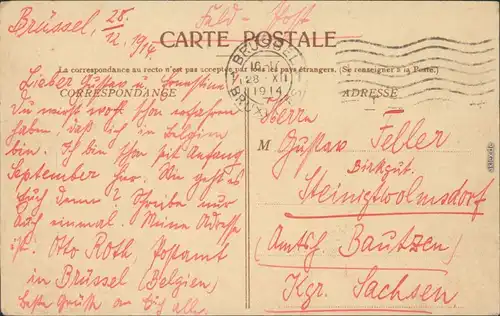 Brüssel, 28.
12. 1914.
Feld-Post
CARTE POSTALE
BRUSSEL
28 XII
1914
La correspondance au recto n'est pas acceptée par tous les pays étrangers. (Se renseigner à la Poste.)
CORRESPONDANCE
ADRESSE
Lieber Gustav u.
Du wirst wohl schon erfahren
haben, daß ich in Belgien
bin. Ich bin schon seit Anfang
September hier. Wie geht es
Euch denn? Schreibe nur
auch einmal. Meine Adresse
ist. Otto Roth, Postamt
in Brüssel (Belgien)
beste Grüße an Euch alle.
Herrn
M Gustav Feller
Birkgut.
Steinigtwolmsdorf
(Amtsh Bautzen)
Kgr. Sachsen